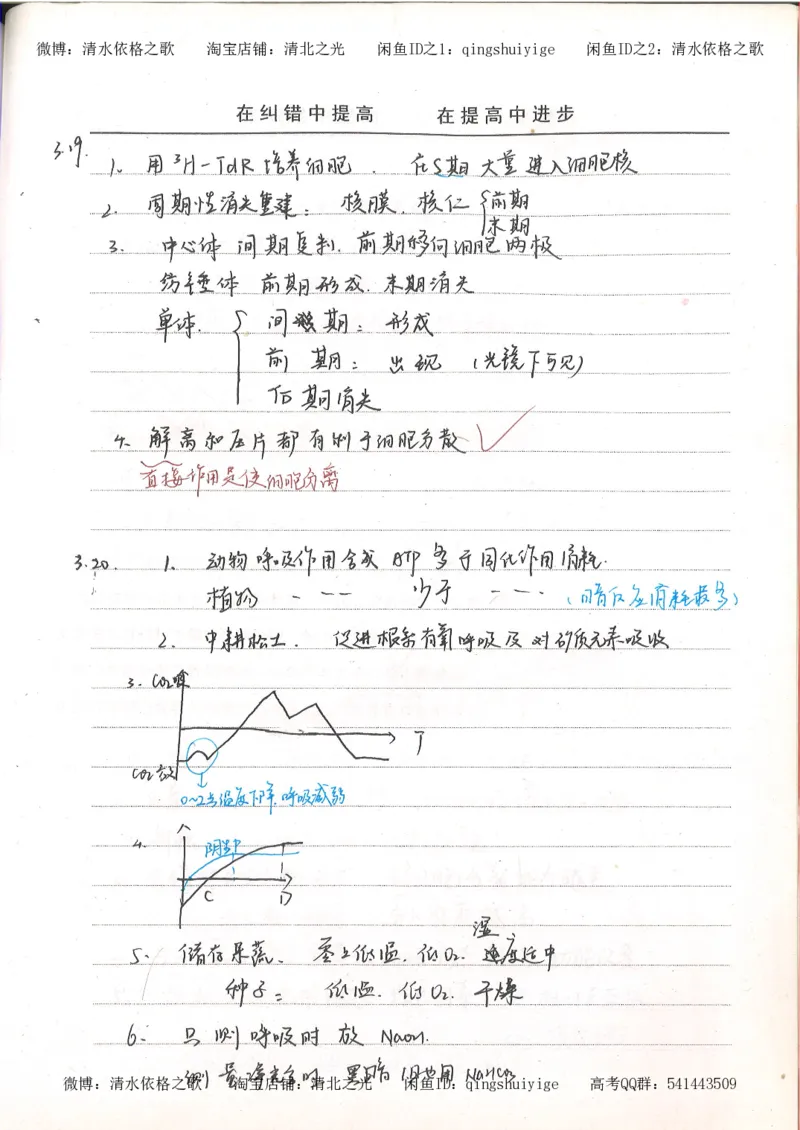 微博：清水依格之歌 淘宝店铺：清北之光 闲鱼ID之1：qingshuiyige 闲鱼ID之2：清水依格之歌
在纠错中提高 在提高中进步
3.19.
1. 用³H-TdR培养细胞. 在S期大量进入细胞核
2. 周期性消失重建：核膜、核仁 前期
末期
3. 中心体 间期复制. 前期移向细胞两极
纺锤体 前期形成. 末期消失
单体. 间期：形成
前期：出现 (光镜下可见)
后期消失
4. 解离和压片都有利于细胞分散
直接作用是使细胞分离
3.20. 1. 动物呼吸作用合成ATP多于同化作用消耗.
植物 - -- 少于 - - -. (暗反应消耗最多)
2. 中耕松土. 促进根系有氧呼吸及对矿质元素吸收
3. CO₂吸
T
CO₂放
0~2点温度下降，呼吸减弱
4.
阴生
C D
湿
5. 储存果蔬、 低温. 低O₂. 度适中
种子： 低温. 低O₂. 干燥
6. 只测呼吸时放NaOH.
测 时 黑暗 用 NaHCO₃
微博：清水依格之歌 淘宝店铺：清北之光 闲鱼ID：qingshuiyige 高考QQ群：541443509